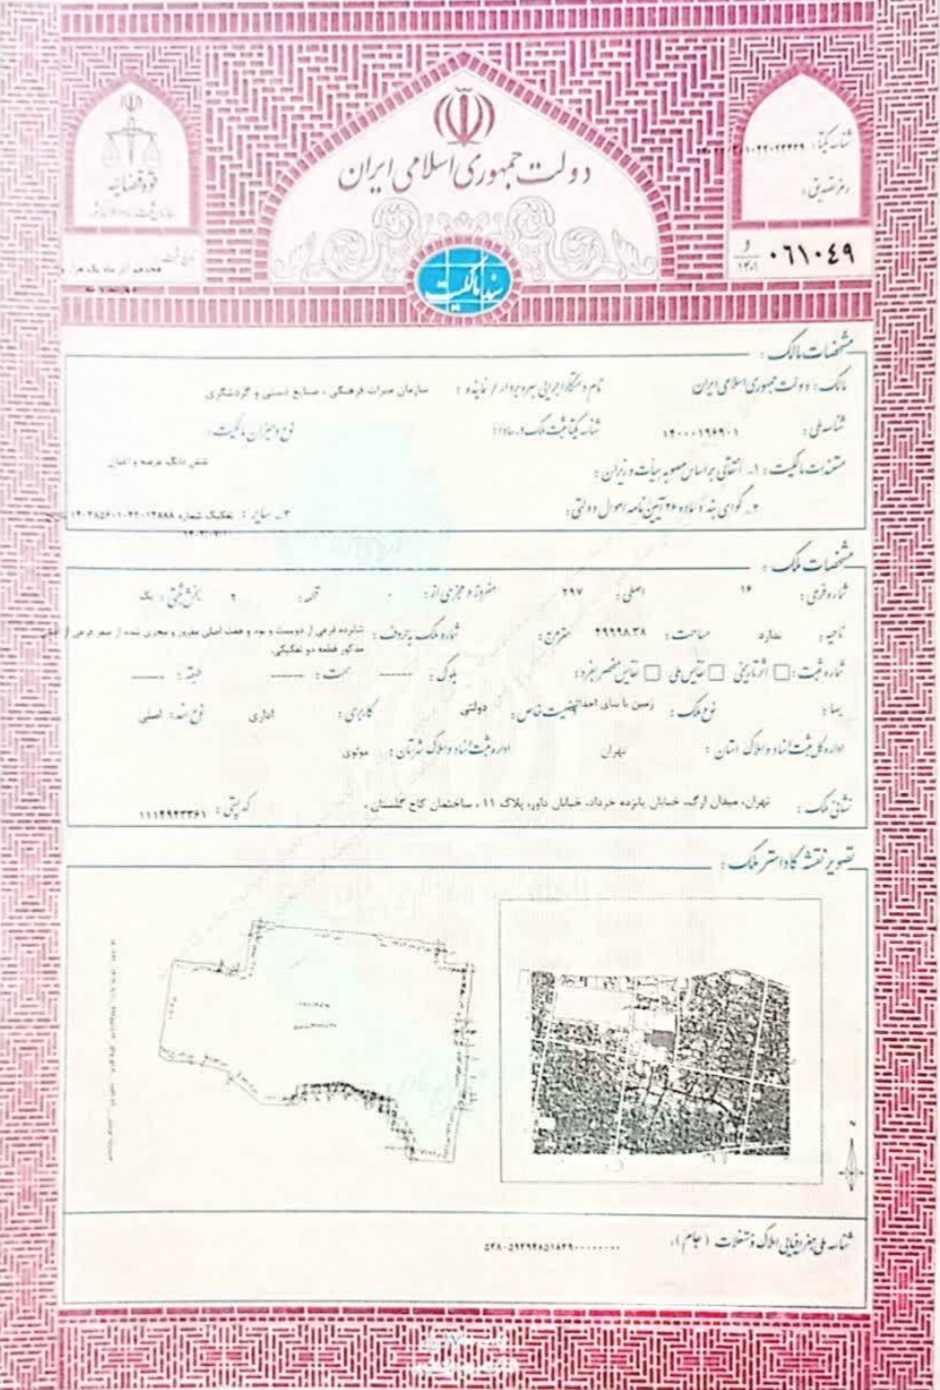 دولت جمهوری اسلامی ایران
قوه قضائیه
شناسه یکتا:
رمز تصدیق:
و
۱۴۰۱
۰۶۱۰۴۹
سند مالکیت
مشخصات مالک:
مالک: دولت جمهوری اسلامی ایران نام دستگاه اجرایی بهره بردار / نماینده: سازمان میراث فرهنگی، صنایع دستی و گردشگری
شناسه ملی: ۱۴۰۰۰۱۹۶۹۰۱ شناسه یکتا ثبت ملک در سادا: نوع و میزان مالکیت:
شش دانگ عرصه و اعیان
مستندات مالکیت: ۱- انتقالی بر اساس مصوبه هیأت وزیران:
۲- گواهی بند ماده ۲۶ آیین نامه اموال دولتی: ۳- سایر: تفکیک شماره
مشخصات ملک:
شماره فرعی: ۱۶ اصلی: ۲۹۷ مفروز و مجزی از: ۰ قطعه: ۲ بخش ثبتی: یک
ناحیه: ندارد مساحت: ۲۹۹۹۸.۳۸ مترمربع: شماره ملک به حروف: شانزده فرعی از دویست و نود و هفت اصلی مفروز و مجزی شده از صفر فرعی از اصلی
مذکور قطعه دو تفکیکی.
شماره ثبت: اثر تاریخی نفایس ملی نفایس منحصر بفرد: بلوک: ------ سمت: ------ طبقه: ------
بهاء: نوع ملک: زمین با بنای احداثی وضعیت خاص: دولتی کاربری: اداری نوع سند: اصلی
اداره کل ثبت اسناد و املاک استان: تهران اداره ثبت اسناد و املاک شهرستان: مولوی
نشانی ملک: تهران، میدان ارگ، خیابان پانزده خرداد، خیابان داور، پلاک ۱۱، ساختمان کاخ گلستان. کد پستی: ۱۱۱۴۹۴۳۳۶۱
تصویر نقشه کاداستر ملک:
شناسه ملی جغرافیایی املاک و مستغلات (جام):